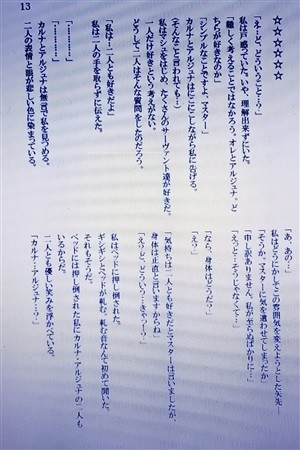 13
☆☆☆☆☆
「え…ど、どういうこと…?」
私は戸惑っていた。いや、理解出来ずにいた。
「難しく考えることではなかろう。オレとアルジュナ、ど
ちらが好きなのか」
「シンプルなことですよ、マスター」
カルナとアルジュナはにこにこしながら私に告げる。
(そんなこと言われても…)
私はマシュをはじめ、たくさんのサーヴァント達が好きだ。
一人だけ好きという考えがない。
どうして二人はそんな質問をしたのだろう。
「私は…二人とも好きだよ」
私は二人の手を取らずに伝えた。
「…………」
「…………」
カルナとアルジュナは無言で私を見つめる。
二人の表情と眼が悲しい色に染まっている。
「あ、あの…」
私はどうにかしてこの雰囲気を変えようとした矢先…
「そうか、マスターに気を遣わせてしまったか」
「申し訳ありません。私が至らぬばかりに…」
「えっと…そうじゃなくて…」
「なら、身体はどうだ?」
「え?」
「気持ちは二人とも好きだとマスターは言いましたが、
身体は正直と言いますからね」
「えっ…ど、どういう…きゃっ!?」
私はベッドに押し倒された。
ギシギシとベッドが軋む。軋む音なんて初めて聞いた。
それもそうだ。
ベッドには押し倒された私にカルナ・アルジュナの二人も
いるからだ。
二人とも優しい笑みを浮かべている。
「カルナ…アルジュナ…?」